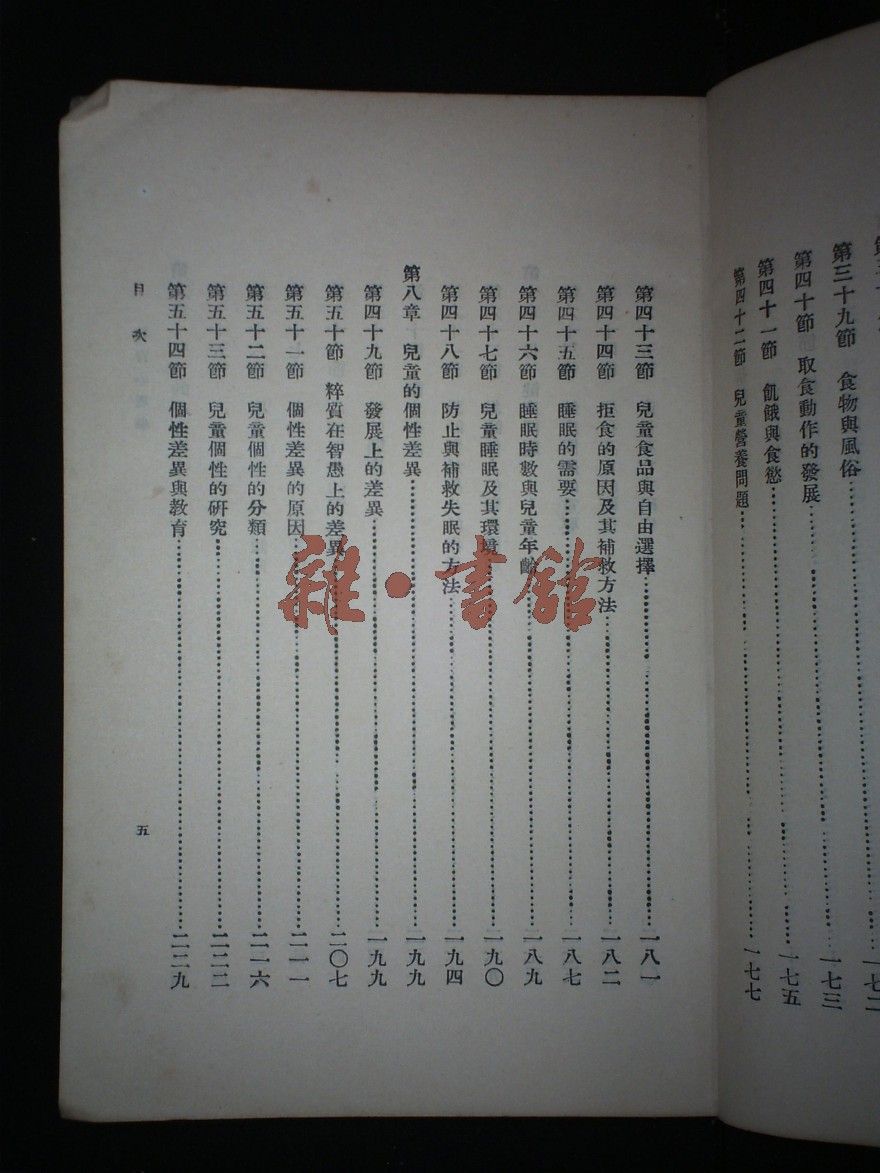 第三十九節　食物與風俗⋯⋯一七二
第四十節　取食動作的發展⋯⋯一七三
第四十一節　飢餓與食慾⋯⋯一七五
第四十二節　兒童營養問題⋯⋯一七七
第四十三節　兒童食品與自由選擇⋯⋯一八一
第四十四節　拒食的原因及其補救方法⋯⋯一八二
第四十五節　睡眠的需要⋯⋯一八七
第四十六節　睡眠時數與兒童年齡⋯⋯一八九
第四十七節　兒童睡眠及其環境⋯⋯一九〇
第四十八節　防止與補救失眠的方法⋯⋯一九四
第八章　兒童的個性差異⋯⋯一九九
第四十九節　發展上的差異⋯⋯一九九
第五十節　粹質在智愚上的差異⋯⋯二〇七
第五十一節　個性差異的原因⋯⋯二一一
第五十二節　兒童個性的分類⋯⋯二一六
第五十三節　兒童個性的研究⋯⋯二二二
第五十四節　個性差異與教育⋯⋯二二九
目次
五
雜·書館